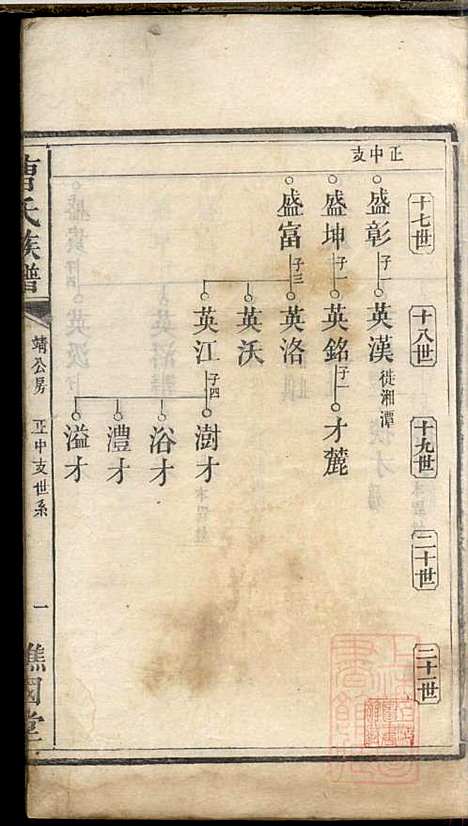 正中支
十七世
十八世
十九世
二十世
二十一世
盛彰 子一
英漢 徙湘潭
盛坤 子一
英銘 子一
才麓
盛富 子三
英洛
英沃
英江 子四
澍才
浴才
澧才
溢才
曹氏族譜
靖公房
正中支世系
一
譙國堂